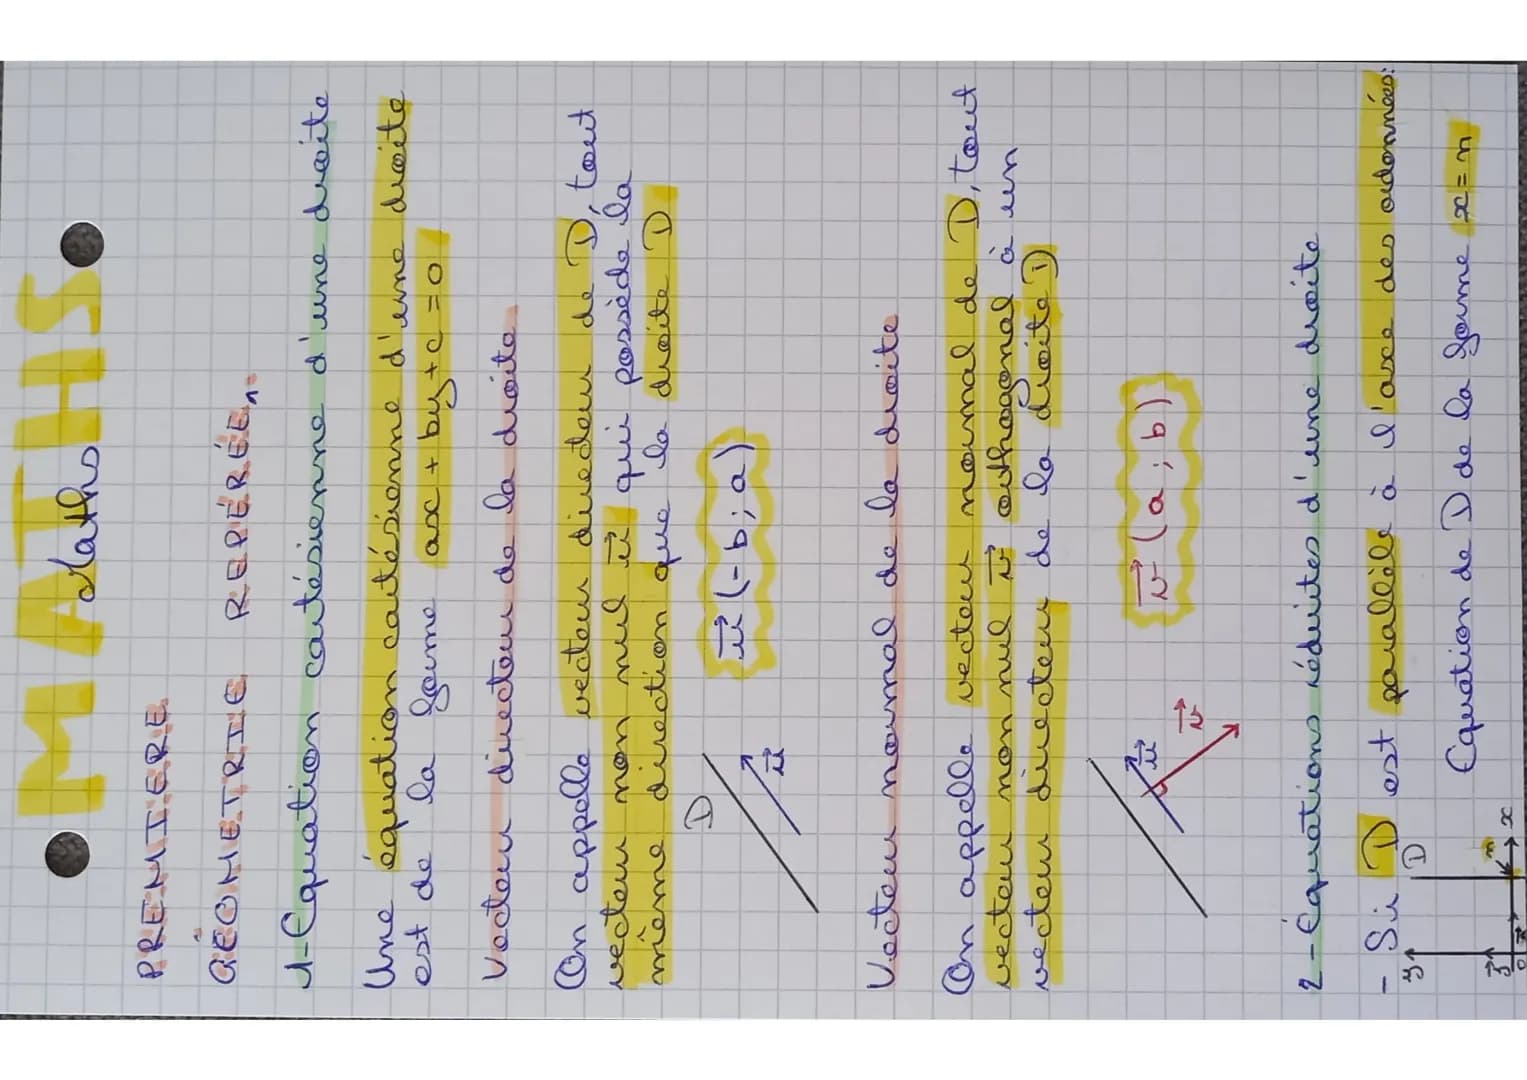 MATHS
Maths
PREMIERE
GÉOMETRIE REPÉRÉE
1-Équation cartésienne d'une droite
Une équation cartésienne d'une droite
est de la forme ax + by + c = 0
Vecteur directeur de la droite
On appelle vecteur directeur de D, tout
vecteur non nul u⃗ qui possède la
même direction que la droite D
D
u⃗
u⃗ (-b; a)
Vecteur normal de la droite
On appelle vecteur normal de D, tout
vecteur non nul v⃗ orthogonal à un
vecteur directeur de la droite D
u⃗
v⃗
v⃗ (a ; b)
2-Équations réduites d'une droite
- Si D est parallèle à l'axe des ordonnées:
Équation de D de la forme x = n
y
D
j⃗
n
x
0